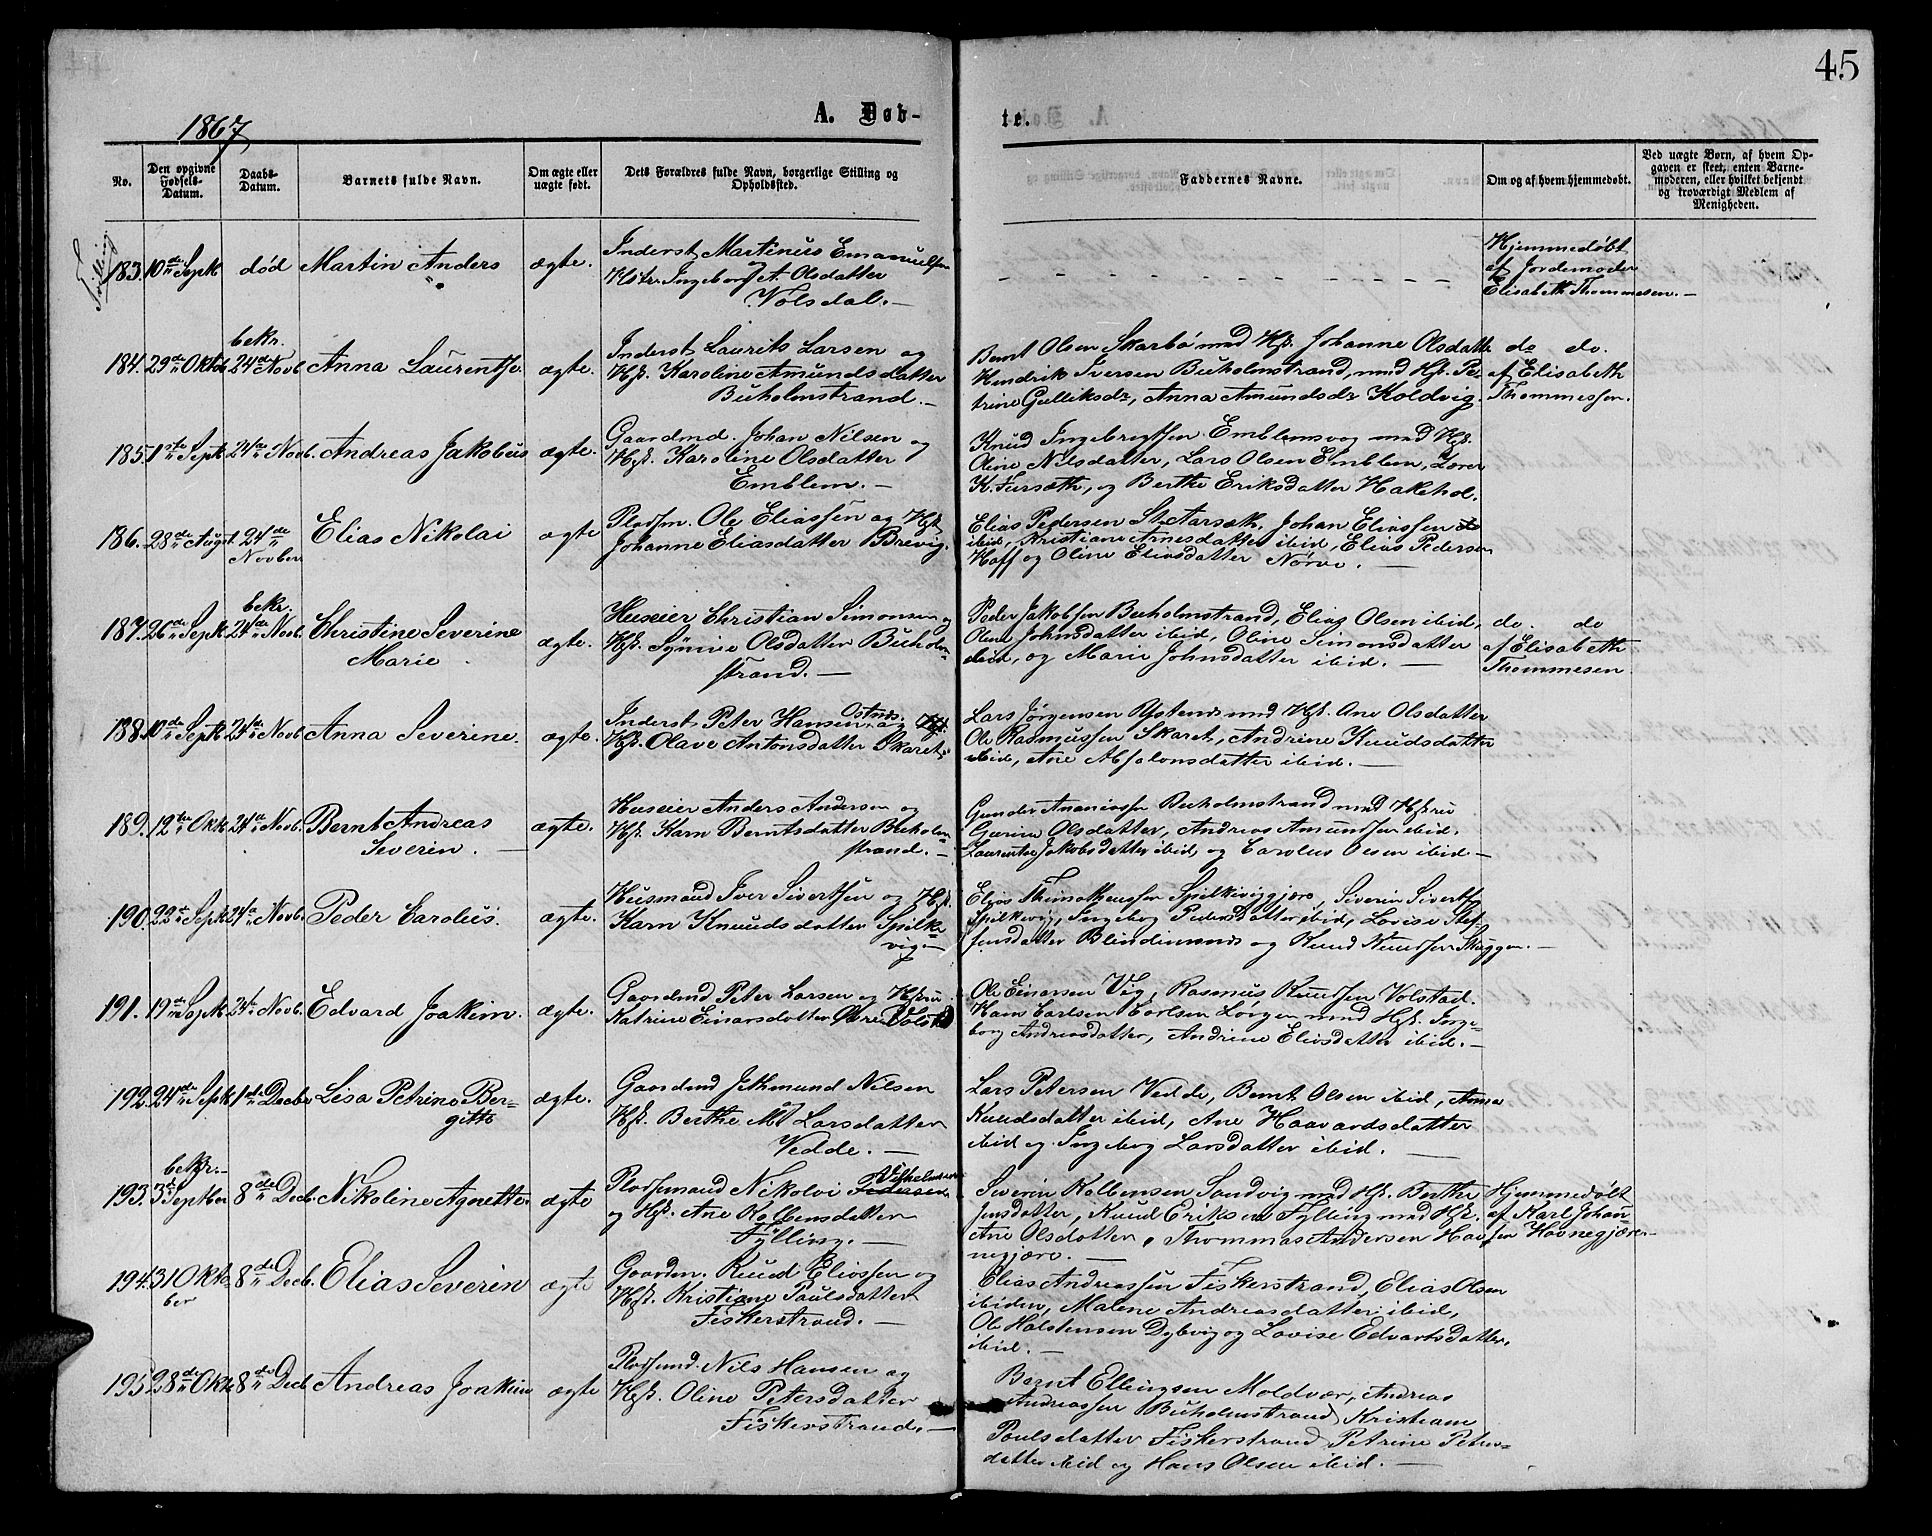 45
1867
A. Døb-
te.
No.
Den opgivne Fødsels-Datum.
Daabs-Datum.
Barnets fulde Navn.
Om ægte eller uægte født.
Dets Forældres fulde Navn, borgerlige Stilling og Opholdssted.
Faddernes Navne.
Om og af hvem hjemmedøbt.
Ved uægte Børn, af hvem Opgaven er skeet, enten Barnemoderen, eller hvilket bekjendt og troværdigt Medlem af Menigheden.
Tvilling
183. 10de Septb død Martin Anders ægte. Inderst Martinus Emanuelsen
og Hstr. Ingeborg A. Olsdatter
Volsdal. —
Hjemmedøbt
af Jordemoder
Elisabeth Thommesen. —
bekr.
184. 29de Oktb 24de Novb. Anna Laurentse. ægte. Inderst Laurits Larsen og
Hst. Karoline Amundsdatter
Buholmstrand. —
Bernt Olsen Skarbø med Hst. Johanne Olsdatter
Hendrik Iversen Buholmstrand, med Hst. Pe-
trine Gulliksdr, Anna Amundsdr Koldvig.
do do.
af Elisabeth
Thommessen.
185. 1ste Septb 24de Novb. Andreas Jakobus ægte. Gaardmd. Johan Nilsen og
Hst. Karoline Olsdatter
Emblem. —
Knud Ingebrigtsen Emblemsvog med Hst.
Oline Nilsdatter, Lars Olsen Emblem, Lærer
K. Fursæth, og Berthe Eriksdatter Hakehol.
186. 28de Augst 24de
Novber Elias Nikolai ægte Pladsm. Ole Eliassen og Hst
Johanne Eliasdatter Brevig.
Elias Pedersen St. Aarsæth, Johan Eliassen
ibid, Kristiane Arnesdatter ibid, Elias Pedersen
Hoff og Oline Eliasdatter Nørve. —
bekr.
187. 26de Septb 24de Novb. Christine Severine
Marie ægte. Huseier Christian Simonsen og
Hst. Synive Olsdatter Buholm-
strand. —
Peder Jakobsen Buholmstrand, Elias Olsen ibid,
Olene Johnsdatter ibid, Oline Simonsdatter
ibid, og Marie Johnsdatter ibid. —
do. do
af Elisabeth
Thommesen
188. 10de Septb 24de Novb. Anna Severine. ægte. Inderst Peter Hansen Ostnes. og
Hst. Olave Antonsdatter Skaret.
Lars Jørgensen Ystenes med Hst. Ane Olsdatter
Ole Rasmussen Skaret, Andrine Knudsdatter
ibid, Ane Absalonsdatter ibid. —
189. 12te Oktb 24de Novb. Bernt Andreas
Severin. — ægte. Huseier Anders Andersen og
Hst. Karn Berntsdatter Buholm
strand. —
Gunder Ananiassen Buholmstrand med Hstru
Gurine Olsdatter, Andreas Amundsen ibid.
Laurentse Jakobsdatter ibid, og Carolus Olsen ibid —
190. 22de Septb 24de Novb. Peder Carolus. ægte. Husmand Iver Sivertsen og Hst.
Karn Knudsdatter Spilke-
vig —
Elias Thimotheussen Spilkeviggjære, Severin Sivertsen
Spilkevig, Ingeborg Pedersdatter ibid, Lovise Stef-
fensdatter Blindimsnes og Knud Knudsen Skuggen. —
191. 19de Septb 24de Novb. Edvard Joakim. ægte. Gaardmd Peter Larsen og Hstru
Katrine Einarsdatter Volstad
Ole Einarsen Vig, Rasmus Knudsen Volstad.
Carlsen Lorgen med Hst. Inge-
borg Andreasdatter, Andrine Eliasdatter ibid. —
192. 24de Septb 1ste Decbr Lisa Petrine Ber-
gitte ægte. Gaardmd Jethmund Nilsen
og
Hst. Berthe M. Larsdatter
Vedde. —
Lars Petersen Vedde, Bernt Olsen ibid, Anna
Knudsdatter ibid, Ane Haavardsdatter
ibid og Ingeborg Larsdatter ibid. —
bekr. —
193. 3de Septber 8de Decb. Nikoline Agnette. ægte Pladsmand Nikolai Vilhelmsen Pedersen
og Hst. Ane Kolbensdatter
Fylling. —
Severin Kolbensen Sandvig med Hst. Berthe
Jensdatter, Knud Eriksen Fylling med Hst.
Ane Olsdatter, Thommas Andersen Hav-
negjære. —
Hjemmedøbt
af Karl Johan-
sen Havnegjære —
194. 31 Oktober 8de Decb. Elias Severin ægte Gaardm. Knud Eliassen og
Hst. Kristiane Paulsdatter
Fiskerstrand. —
Elias Andreassen Fiskerstrand, Elias Olsen
ibidem, Malene Andreasdatter ibid,
Ole Halstensen Dybvig og Lovise Edvartsdatter,
ibid. —
195. 28de Oktb 8de Decb. Andreas Joakim ægte Pladsmd. Nils Hansen og
Hst. Oline Petersdatter
Fiskerstrand. —
Bernt Ellingsen Moldvær, Andreas
Andreassen Buholmstrand Kristiane
Poulsdatter Fiskerstrand, Petrine Peters-
datter ibid og Hans Olsen ibid. —